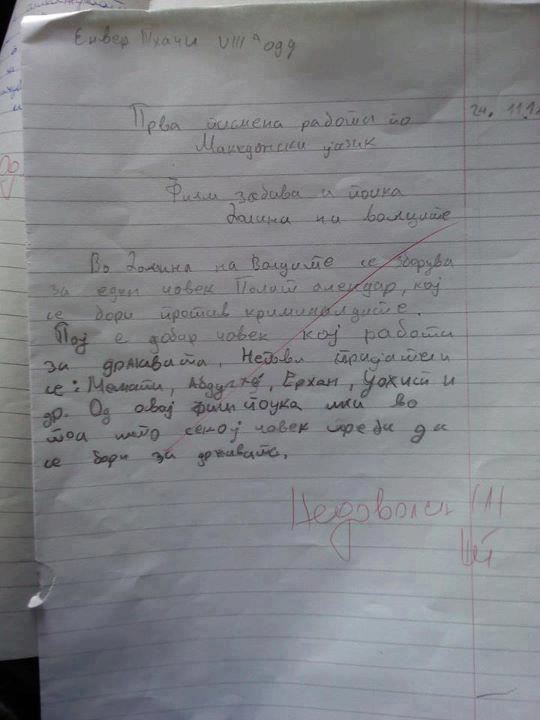 Енвер Тхачи VIII а одд
24. 11.1
Прва писмена работа по
Македонски јазик
Филм забава и поука
Долина на волците
Во Долина на Волците се зборува
за еден човек Полат алемдар, кој
се бори против криминалците.
Тој е добар човек кој работи
за државата, Негови пријатели
се: Мемати, Абдулхеј, Ерхан, и
др. Од овај филм поука има во
тоа што секој човек треба да
се бори за државата.
Недоволен (1)